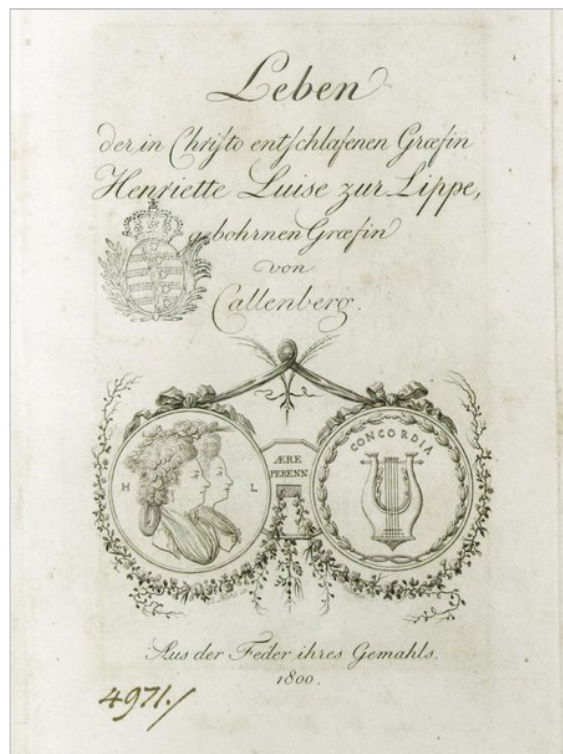 Leben
der in Chriſto entſchlafenen Græfin
Henriette Luise zur Lippe,
gebohrnen Græfin
von
Callenberg.
ÆRE
PERENN.
CONCORDIA
H L
Aus der Feder ihres Gemahls.
1800.
4971./